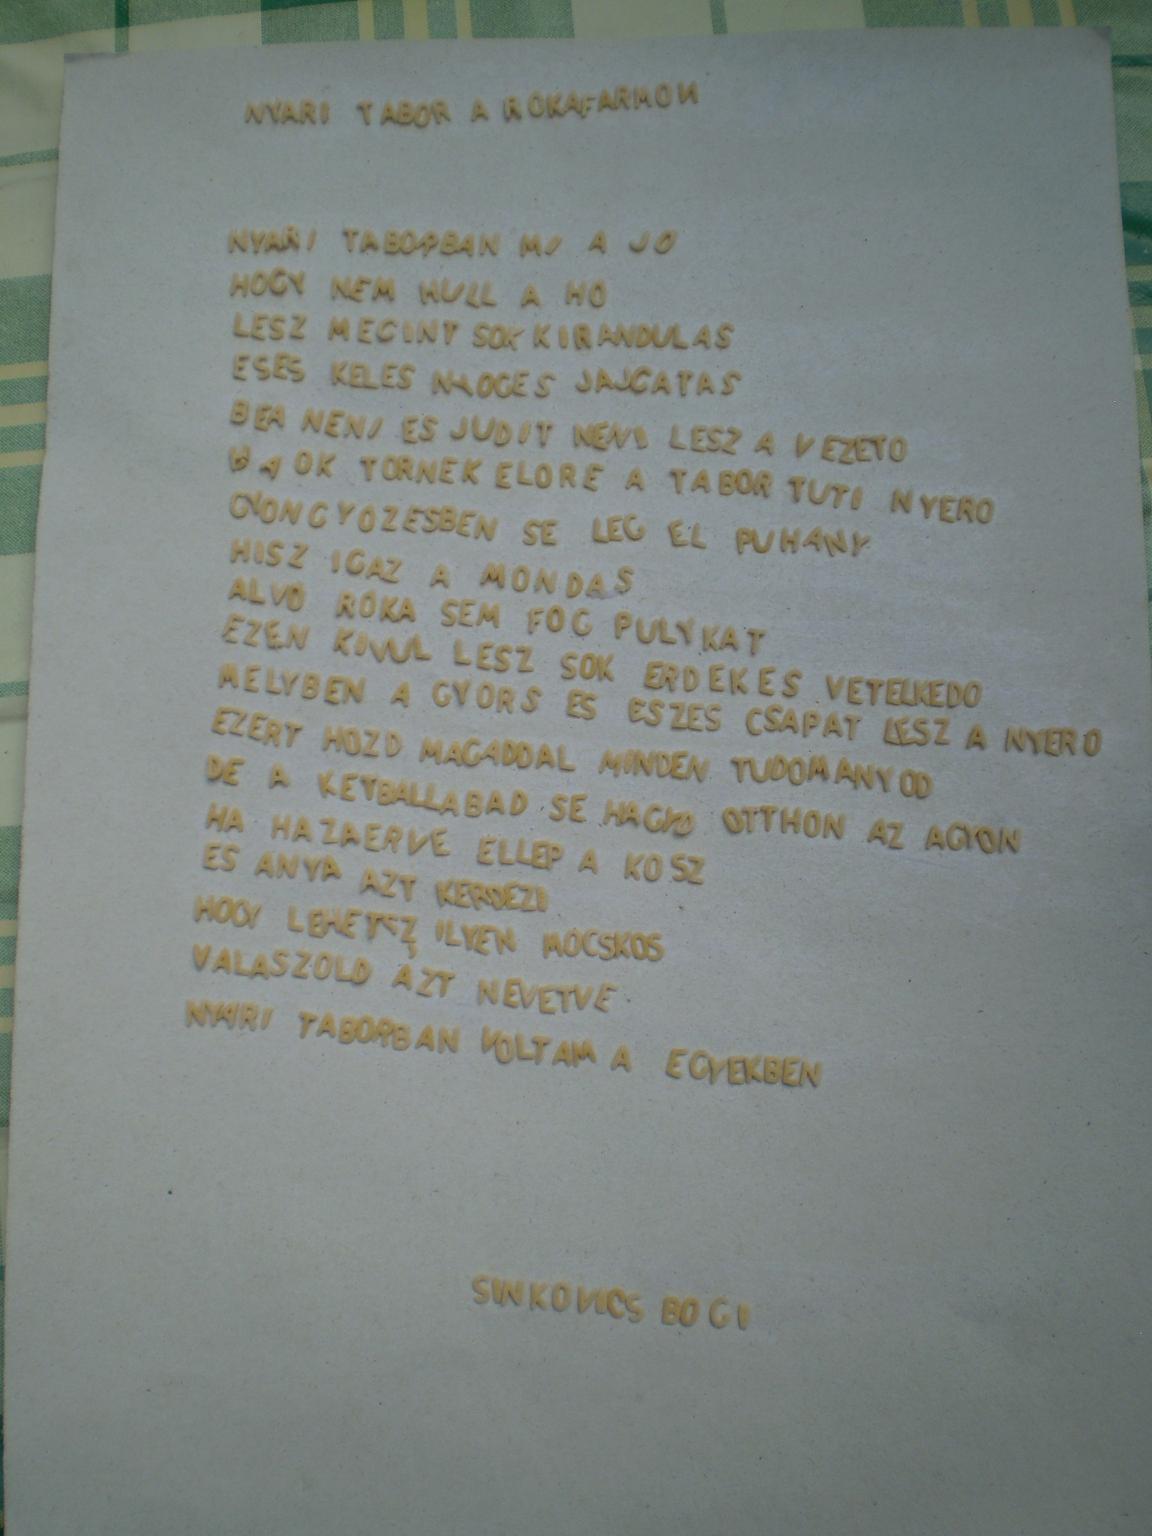 NYARI TABOR A ROKAFARMON
NYARI TABORBAN MI A JO
HOGY NEM HULL A HO
LESZ MEGINT SOK KIRANDULAS
ESES KELES NYOGES JAJGATAS
BEA NENI ES JUDIT NENI LESZ A VEZETO
HA OK TORNEK ELORE A TABOR TUTI NYERO
GYONGYOZESBEN SE LEG EL PUHANY
HISZ IGAZ A MONDAS
ALVO ROKA SEM FOG PULYKAT
EZEN KIVUL LESZ SOK ERDEKES VETELKEDO
MELYBEN A GYORS ES ESZES CSAPAT LESZ A NYERO
EZERT HOZD MAGADDAL MINDEN TUDOMANYOD
DE A KETBALLABAD SE HAGYD OTTHON AZ AGYON
HA HAZAERVE ELLEP A KOSZ
ES ANYA AZT KERDEZI
HOGY LEHETSZ ILYEN MOCSKOS
VALASZOLD AZT NEVETVE
NYARI TABORBAN VOLTAM A EGYEKBEN
SINKOVICS BOGI